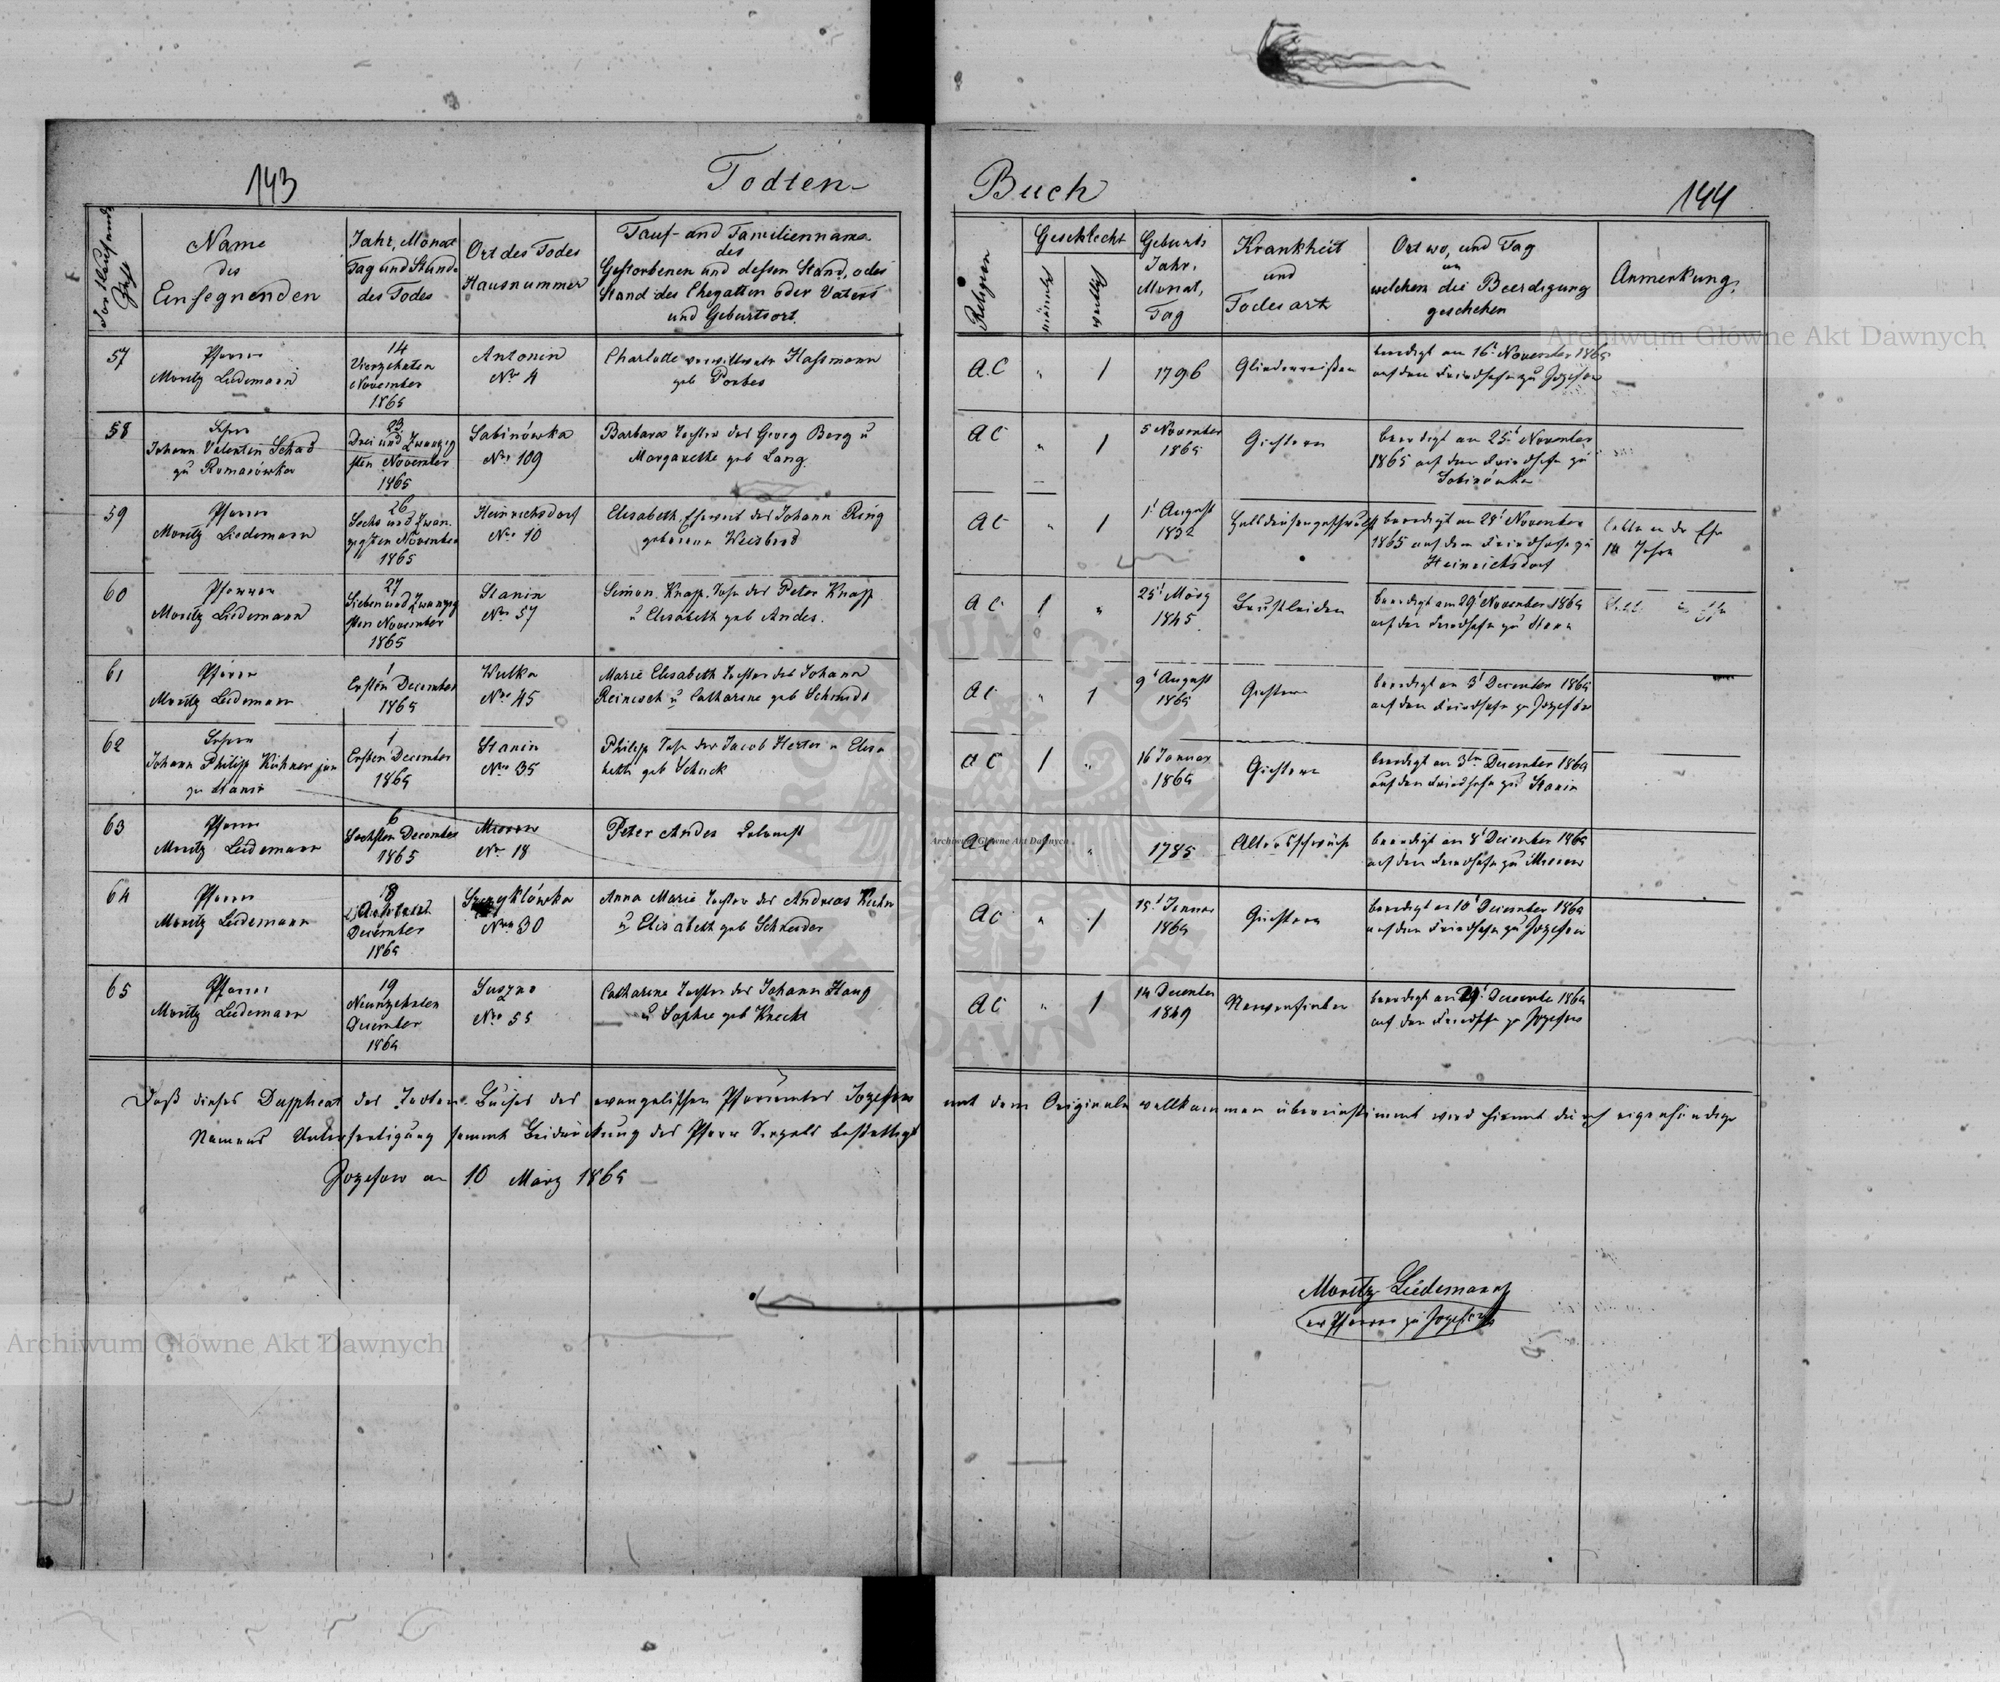 143
Todten-
Buch
144
Name
des
Einsegnenden
Jahr, Monat
Tag und Stunde
des Todes
Ort des Todes
Hausnummer
Tauf- und Familienname
des
Gestorbenen und dessen Stand, oder
Stand des Ehegatten oder Vaters
und Geburtsort.
Religion
Geschlecht
männlich
weiblich
Geburts
Jahr,
Monat,
Tag
Krankheit
und
Todesart
Ort wo, und Tag
an
welchem die Beerdigung
geschehen
Anmerkung.
57
Pfarrer
Moritz Liedemann
14
Vierzehnten
November
1865
Antonin
Nro 4
Charlotte verwittwete Hassmann
geb
A.C
"
1
1796
Gliederreißen
beerdigt am 16t November 1865
auf dem Friedhofe zu Jozefow
58
Lehrer
Johann Valentin Schad
zu Romanówka
23
Drei und Zwanzig
sten November
1865
Sabinówka
Nro 109
Barbara Tochter des Georg Berg u
Margarethe geb Lang.
AC
"
1
5 November
1865
Gichtern
beerdigt am 25t November
1865 auf dem Friedhofe zu
Sabinówka
59
Pfarrer
Moritz Liedemann
26
Sechs und Zwan
zigsten November
1865
Heinrichsdorf
Nro 10
Elisabeth, Eheweib des Johann Ring
geborene
AC
"
1
1t August
1832
beerdigt am 28t November
1865 auf dem Friedhofe zu
Heinrichsdorf
lebte in der Ehe
Jahre
60
Pfarrer
Moritz Liedemann
27
Sieben und Zwanzig
sten November
1865
Stanin
Nro 57
Simon Knapp, Sohn des Peter Knapp
u Elisabeth geb Andes.
AC
1
"
25t März
1845
Brustleiden
beerdigt am 29t November 1865
auf dem Friedhofe zu
61
Pfarrer
Moritz Liedemann
1
Ersten December
1865
Wulka
Nro 45
Marie Elisabeth Tochter des Johann
u Catharine geb Schmidt
AC
"
1
9t August
1865
Gichtern
beerdigt am 3t December 1865
auf dem Friedhofe zu Jozefow
62
Lehrer
Johann Philipp Kühner jun
zu Stanin
1
Ersten December
1865
Stanin
Nro 35
Philipp Sohn des Jacob Herter u Elisa
beth geb Schuck
AC
1
"
16 Januar
1865
Gichtern
beerdigt am 3ten December 1865
auf dem Friedhofe zu Stanin
63
Pfarrer
Moritz Liedemann
6
Sechsten December
1865
Mierow
Nro 18
Peter Andes
AC
1
"
1785
Altersschwäche
beerdigt am 8t December 1865
auf dem Friedhofe zu Mierow
64
Pfarrer
Moritz Liedemann
8
Achten
December
1865
Szczyklówka
Nro 30
Anna Marie Tochter des Andreas
u Elisabeth geb Schneider
AC
"
1
Januar
1865
Gichtern
beerdigt am 10t December 1865
auf dem Friedhofe zu Jozefow
65
Pfarrer
Moritz Liedemann
19
Neunzehnten
December
1865
Suszno
Nro 55
Catharine Tochter des Johann Haug
u Sophie geb Knecht
AC
"
1
14 December
1849
Nervenfieber
beerdigt am 21t December 1865
auf dem Friedhofe zu Jozefow
Daß dieses Dupplicat des Todten-Buches des evangelischen Pfarramtes Jozefow mit dem Originale vollkommen übereinstimmt wird hiemit durch eigenhändige
Namens Unterfertigung sammt Beidrückung des Pfarr Siegels bestättigt
Jozefow am 10 März 1865
Moritz Liedemann
ev Pfarrer zu Jozefow
Archiwum Główne Akt Dawnych
Archiwum Główne Akt Dawnych
Archiwum Główne Akt Dawnych
ARCHIWUM GŁÓWNE AKT DAWNYCH